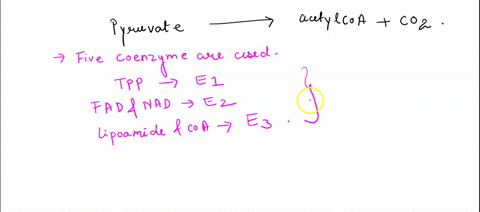 Pyruvate → acetylCoA + CO2.
→ Five coenzyme are used.
TPP → E1
FAD & NAD → E2
Lipoamide & CoA → E3.